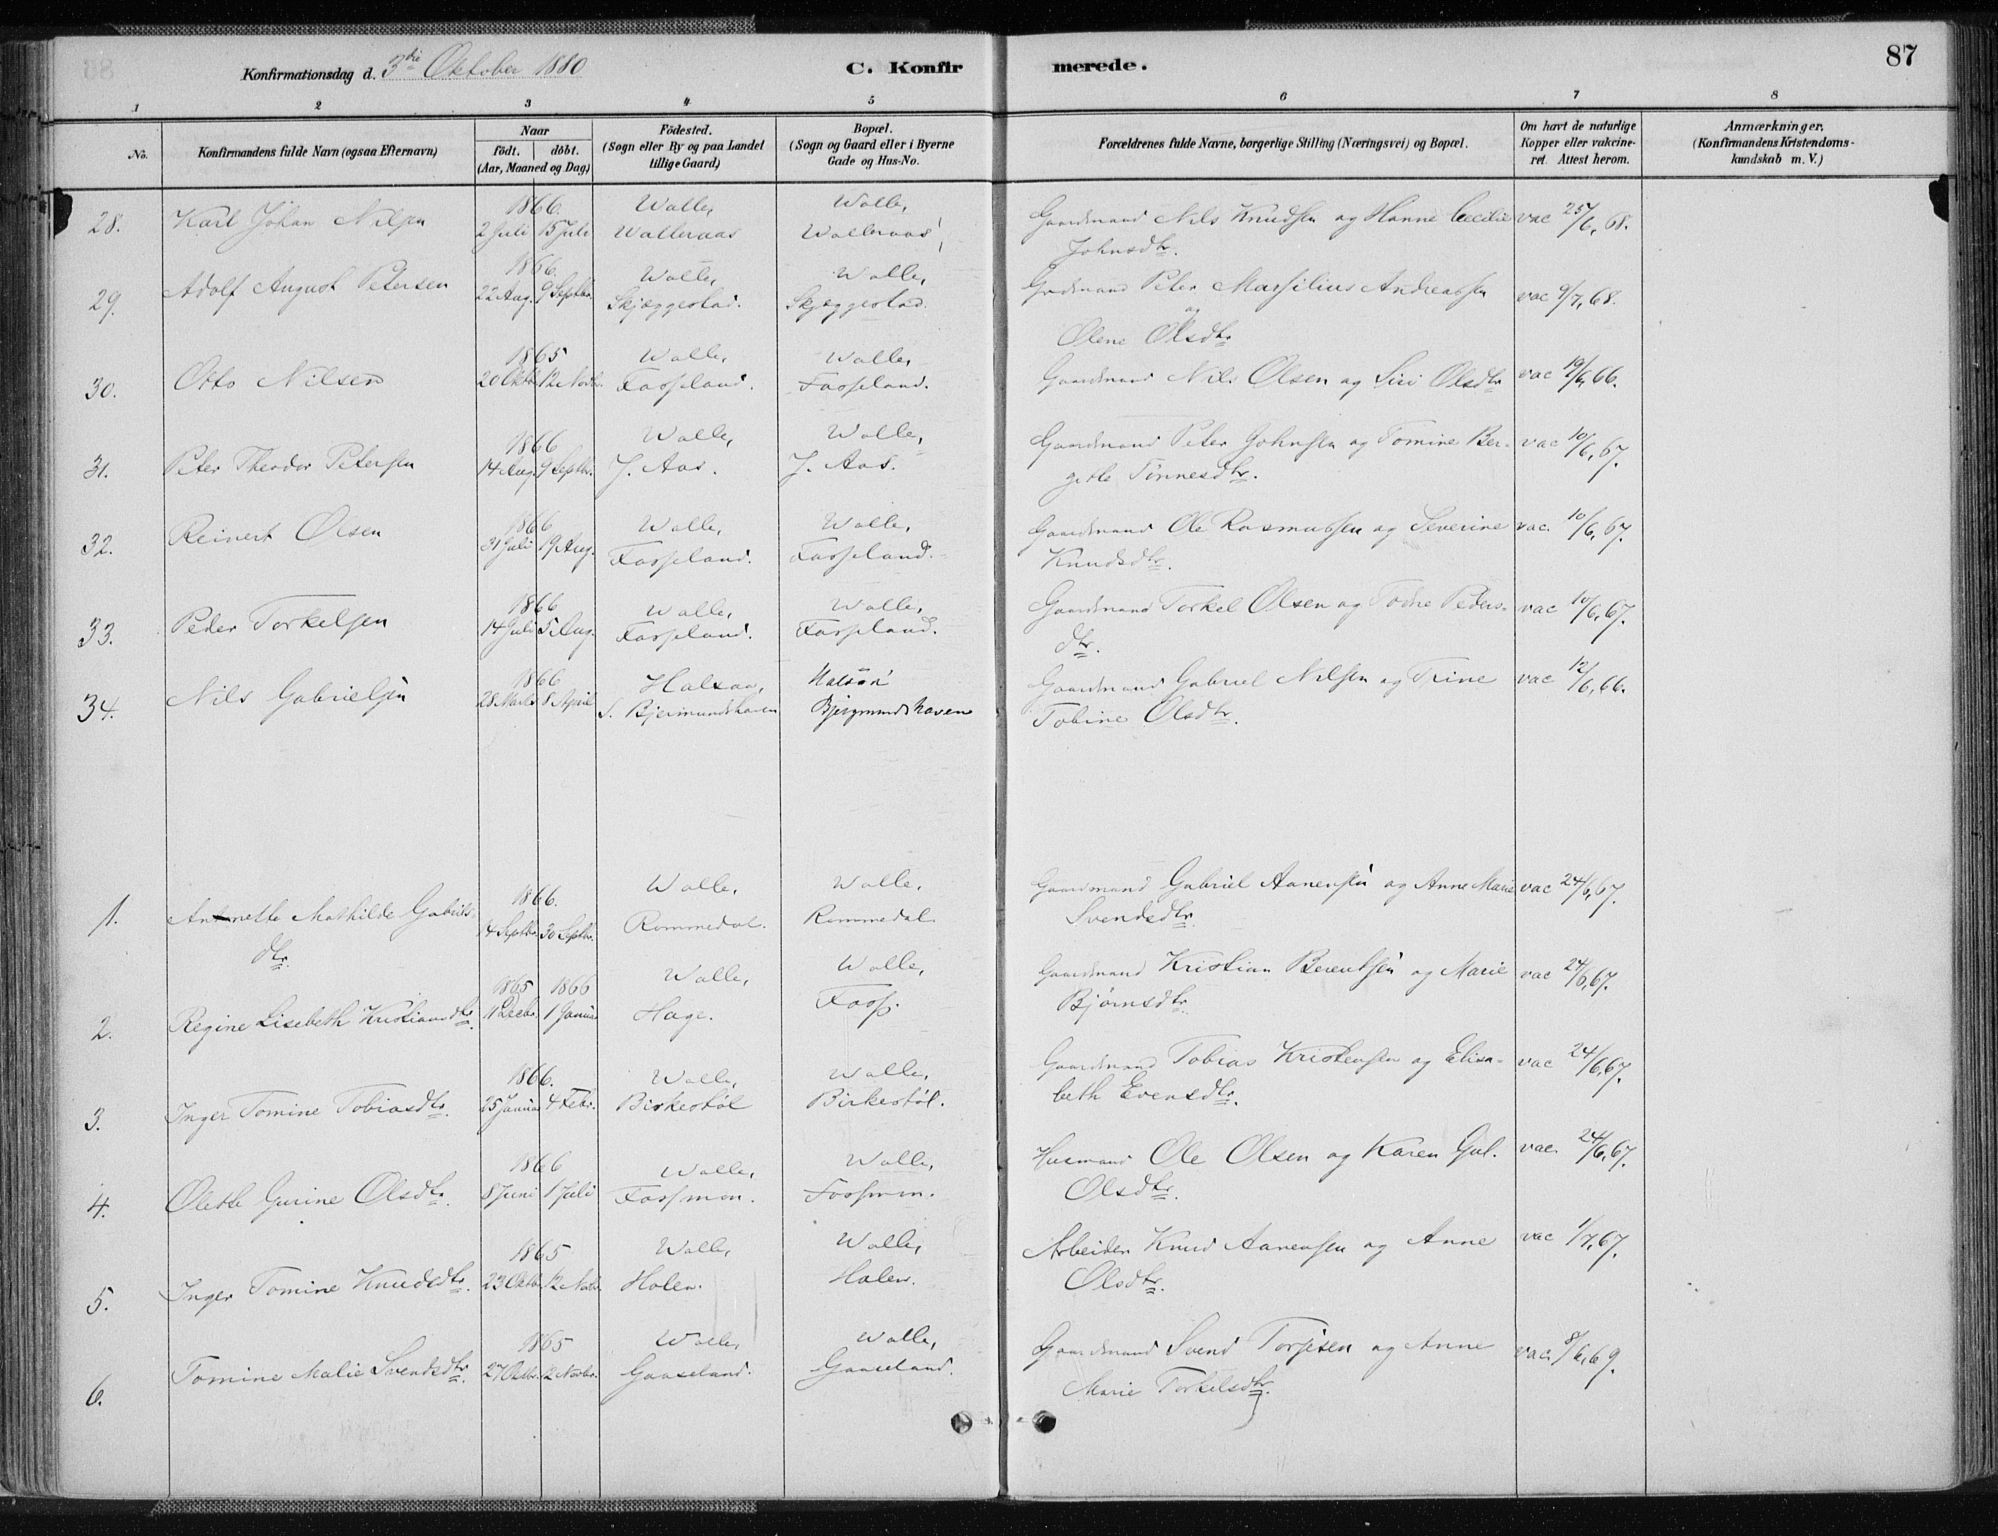 Konfirmationsdag d. 3die Oktober 1880
C. Konfirmerede.
87
1 2 3 4 5 6 7 8
No.
Konfirmandens fulde Navn (ogsaa Efternavn)
Naar
födt. döbt.
(Aar, Maaned og Dag)
Födested.
(Sogn eller By og paa Landet
tillige Gaard)
Bopæl.
(Sogn og Gaard eller i Byerne
Gade og Hus-No.
Forældrenes fulde Navne, borgerlige Stilling (Næringsvei) og Bopæl.
Om havt de naturlige
Kopper eller vakcine-
ret. Attest herom.
Anmærkninger,
(Konfirmandens Kristendoms-
kundskab m. V.)
1866. Walle, Walle,
28. Karl Johan Nilsen 2 Juli 15 Juli Walleraas Walleraas Gaardmand Nils Knudsen og Hanne Cecilie vac 25/6, 68.
Johnsdtr.
1866. Walle, Walle,
29. Adolf August Petersen 22 Aug. 9 Septbr. Skjæggestad. Skjæggestad. Grdmand Peter Marsilius Andreassen vac 9/7, 68.
og
Olene Olsdtr
1865 Walle, Walle,
30. Otto Nilsen 20 Oktb. 12 Novbr. Fasseland. Fasseland. Gaardmand Nils Olsen og Siri Olsdtr vac 19/6, 66.
1866 Walle, Walle,
31. Peter Theodor Petersen 14 Aug. 9 Septbr. J. Aas. J. Aas. Gaardmand Peter Johnsen og Tomine Ber- vac 10/6, 67.
gitte Tønnesdtr.
1866 Walle, Walle,
32. Reinert Olsen 31 Juli 19 Aug. Fasseland. Fasseland. Gaardmand Ole Rasmussen og Severine vac. 10/6, 67.
Knudsdtr.
1866 Walle, Walle,
33. Peder Torkelsen 14 Juli 5 Aug. Fasseland. Fasseland. Gaardmand Torkel Olsen og Todne Peders- vac 10/6, 67.
dtr.
1866 Halsaa, Halsaa
34. Nils Gabrielsen 28 Marts 8 April S. Bjermundshaven Bjermundshaven Gaardmand Gabriel Nilsen og Trine vac 12/6, 66.
Tobine Olsdtr.
1866. Walle, Walle,
1. Antonette Mathilde Gabriels- 14 Septbr. 30 Septbr. Rommedal. Rommedal. Gaardmand Gabriel Aanensen og Anne Marie vac 24/6, 67.
dtr. Svendsdtr.
1865 1866 Walle, Walle,
2. Regine Lisebeth Kristiansdtr. 11 Decbr. 1 Januar Hage. Foss. Gaardmand Kristian Berentsen og Marie vac 24/6, 67.
Bjørnsdtr.
1866. Walle, Walle,
3. Inger Tomine Tobiasdtr. 25 Januar 4 Febr. Birkestøl Birkestøl. Gaardmand Tobias Kristensen og Elisa- vac 24/6, 67.
beth Evensdtr.
1866 Walle, Walle,
4. Olette Gurine Olsdtr. 8 Juni 1 Juli Fossmon. Fossmon. Husmand Ole Olsen og Karen Gul. vac. 24/6, 67.
Olsdtr.
1865 Walle, Walle,
5. Inger Tomine Knudsdtr. 23 Oktbr. 12 Novbr. Holen. Holen. Arbeider Knud Aanensen og Anne vac 1/7, 67.
Olsdtr.
1865 Walle, Walle,
6. Tomine Malie Svendsdtr. 27 Oktbr. 12 Novbr. Gaaseland. Gaaseland. Gaardmand Svend Torjesen og Anne vac. 8/6, 69.
Marie Torkelsdtr.